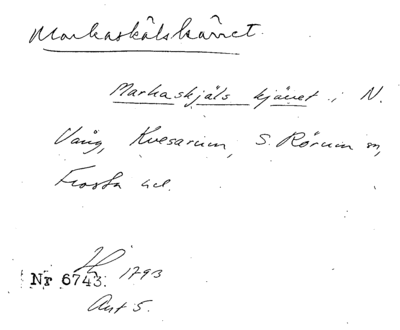 Markaskälskärret.
Markaskjäls kjärret i N.
Vång, Kvesarum, S. Rörum sn,
Frosta hd.
Nr 6743. 1793
Akt 5.